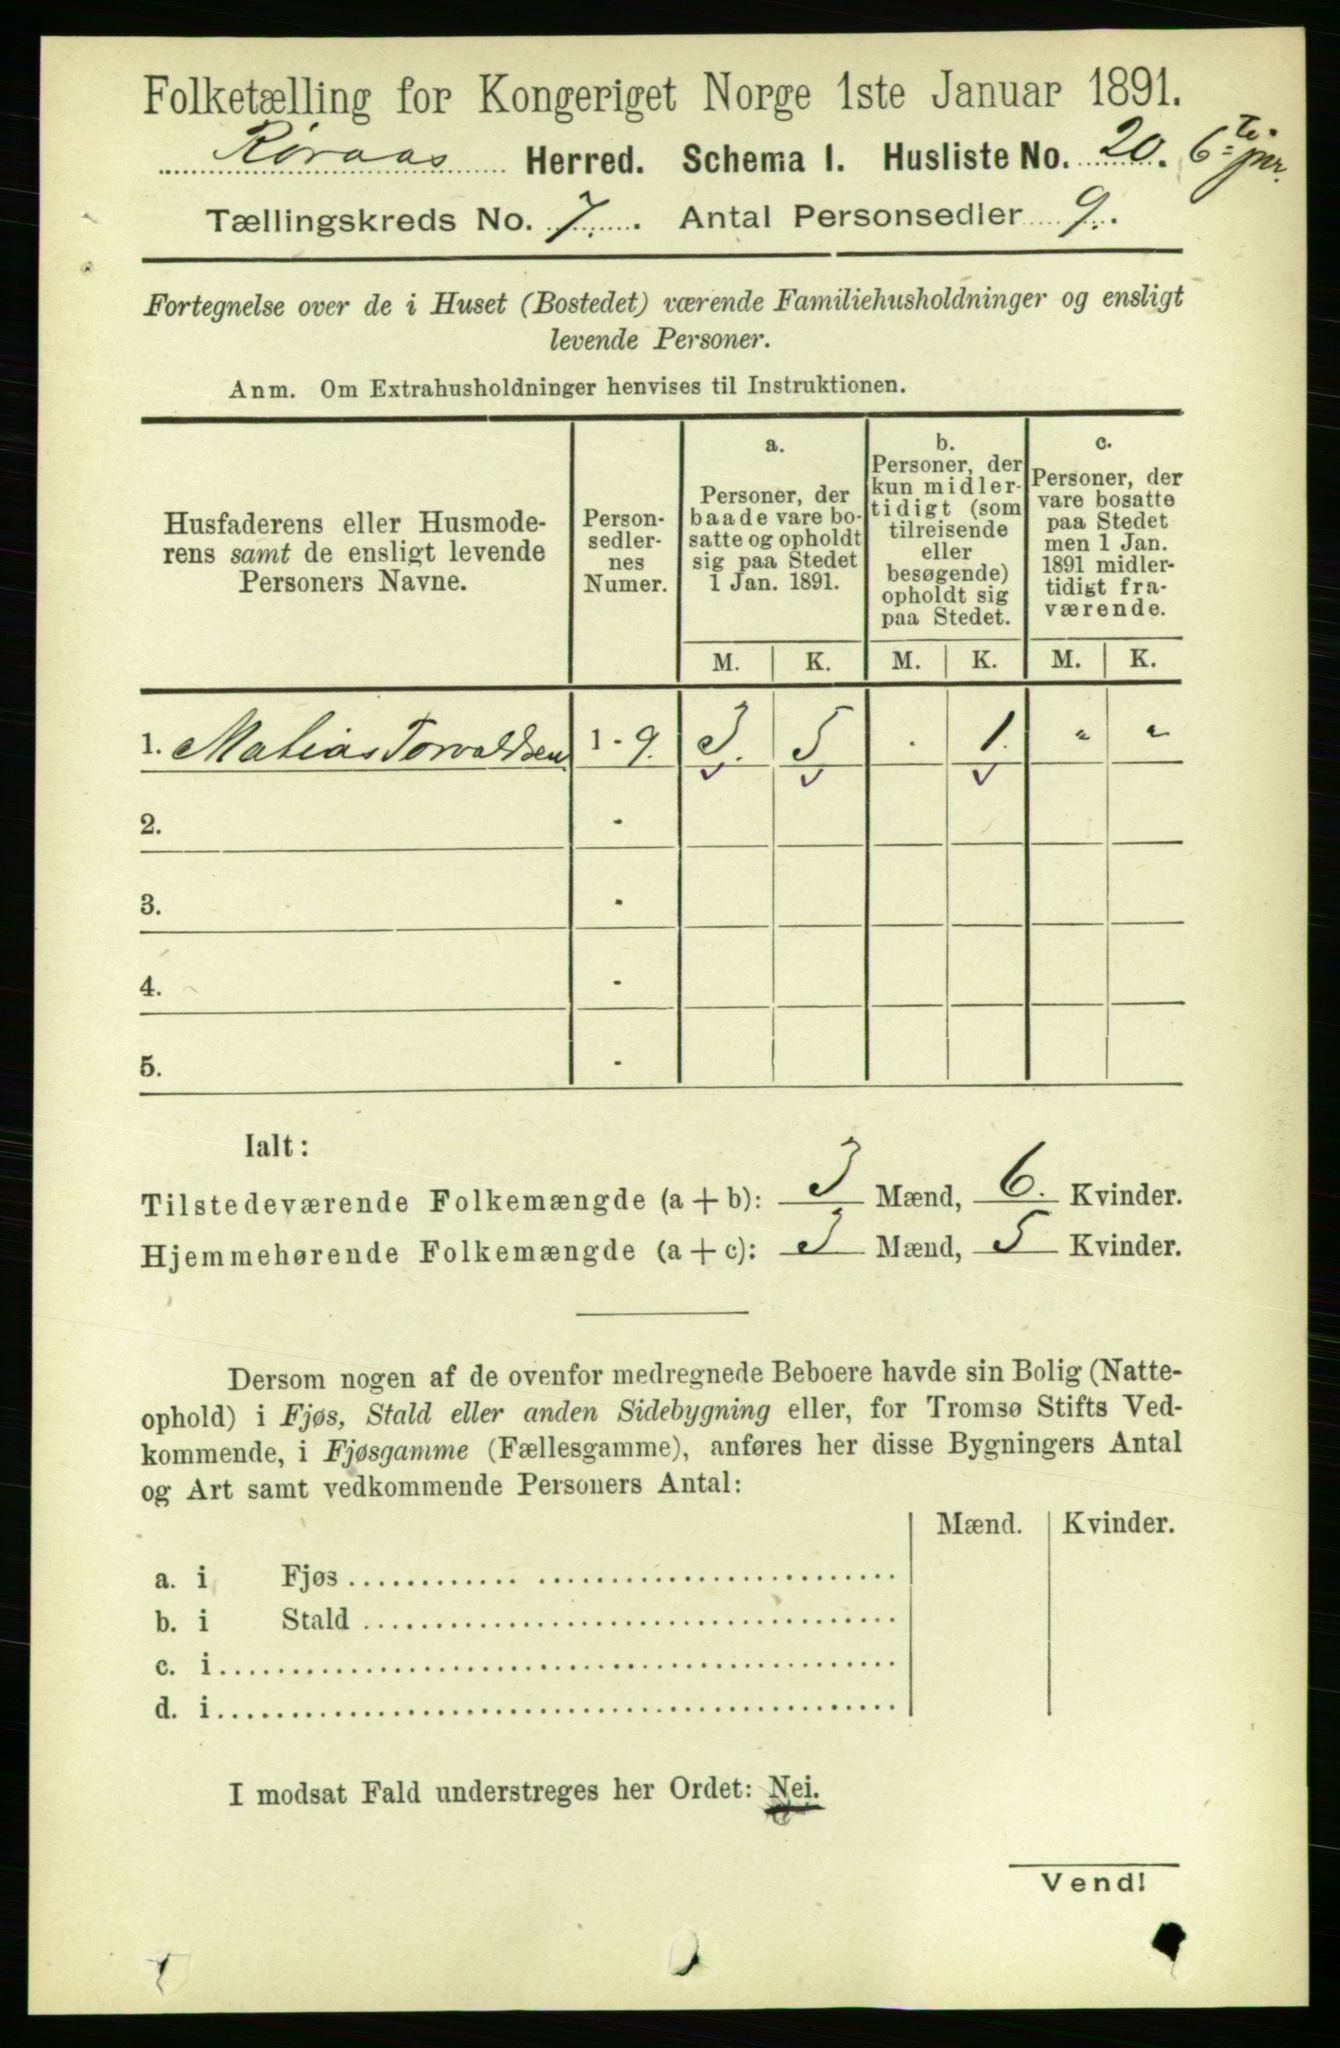 Folketælling for Kongeriget Norge 1ste Januar 1891.
Røraas Herred. Schema I. Husliste No. 20. 6te
Tællingskreds No. 7. Antal Personsedler 9.
Fortegnelse over de i Huset (Bostedet) værende Familiehusholdninger og ensligt
levende Personer.
Anm. Om Extrahusholdninger henvises til Instruktionen.
Husfaderens eller Husmode-
rens samt de ensligt levende
Personers Navne.
Person-
sedler-
nes
Numer.
a.
Personer, der
baade vare bo-
satte og opholdt
sig paa Stedet
1 Jan. 1891.
b.
Personer, der
kun midler-
tidigt (som
tilreisende
eller
besøgende)
opholdt sig
paa Stedet.
c.
Personer, der
vare bosatte
paa Stedet
men 1 Jan.
1891 midler-
tidigt fra-
værende.
M. K. M. K. M. K.
1. Matias Torvaldsen 1 - 9. 3. 5 . 1. " "
2. -
3. -
4. -
5. -
Ialt:
Tilstedeværende Folkemængde (a + b): 3 Mænd, 6. Kvinder.
Hjemmehørende Folkemængde (a + c): 3 Mænd, 5 Kvinder.
Dersom nogen af de ovenfor medregnede Beboere havde sin Bolig (Natte-
ophold) i Fjøs, Stald eller anden Sidebygning eller, for Tromsø Stifts Ved-
kommende, i Fjøsgamme (Fællesgamme), anføres her disse Bygningers Antal
og Art samt vedkommende Personers Antal:
Mænd. Kvinder.
a. i Fjøs
b. i Stald
c. i
d. i
I modsat Fald understreges her Ordet: Nei.
Vend!